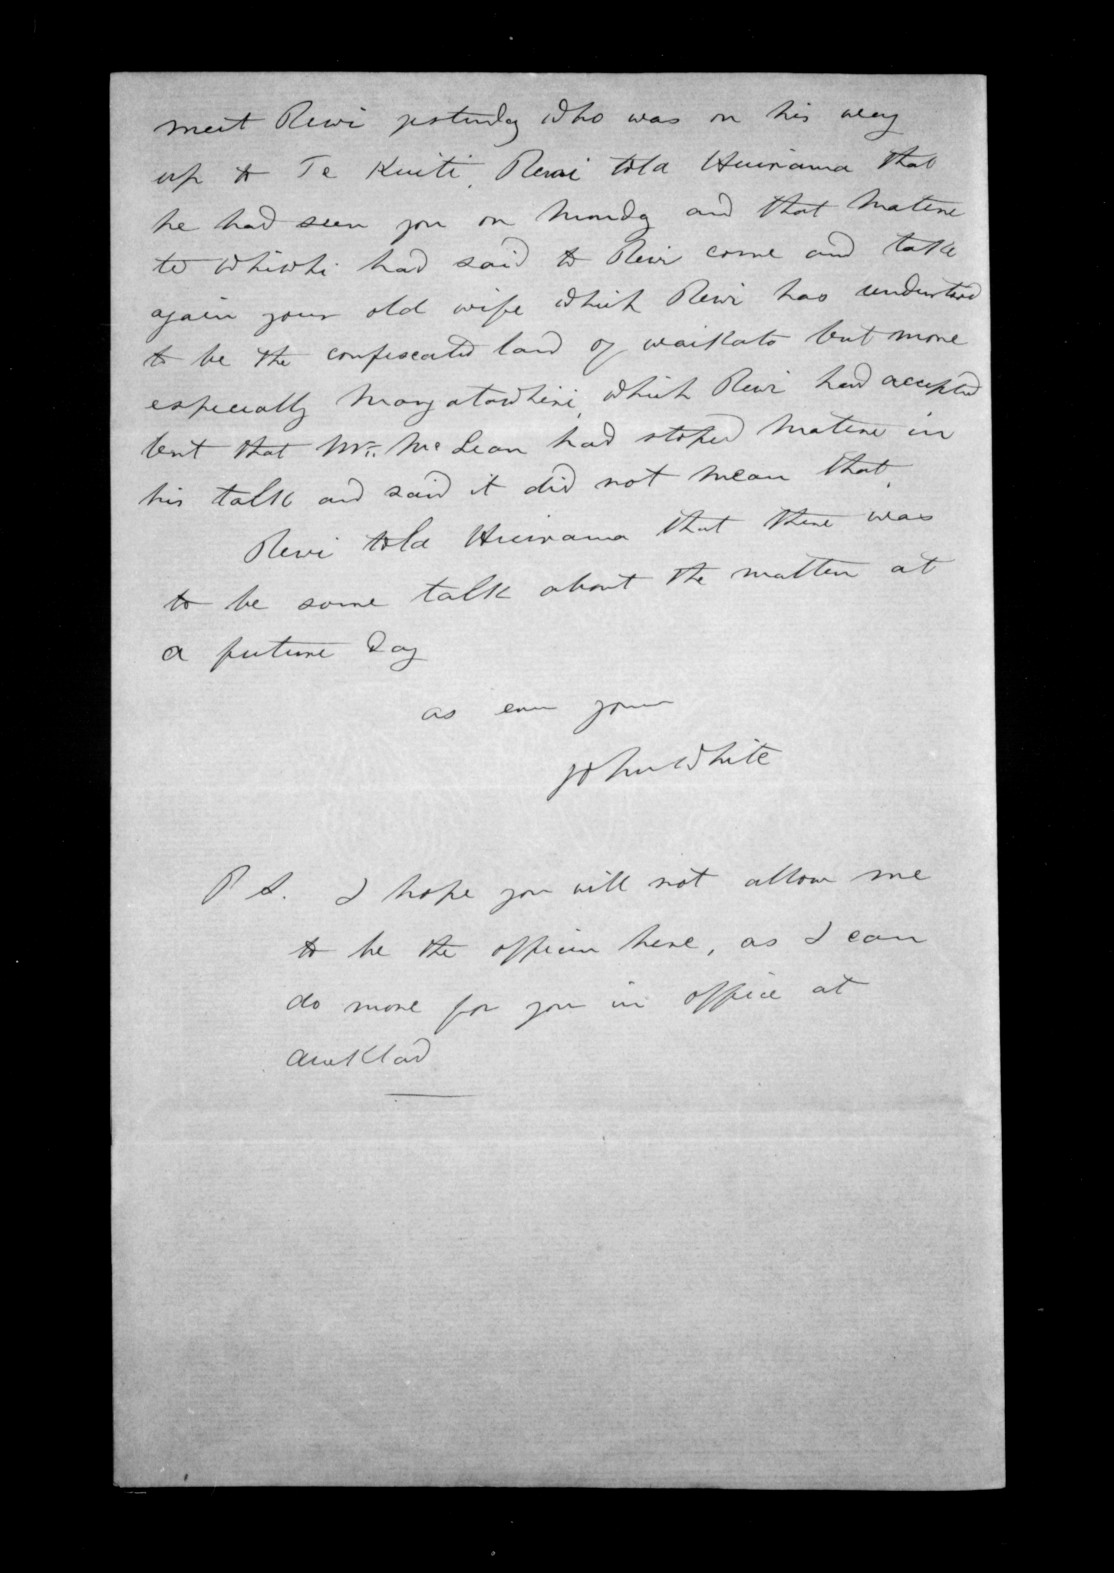 meet Rewi yesterday who was on his way
up to Te Kuiti, Rewi told Huirama that
he had seen you on Monday and that Matene
te Whiwhi had said to Rewi come and take
again your old wife which Rewi has understood
to be the confiscated land of Waikato but more
especially Mangatawhiri, which Rewi had accepted
but that Mr. McLean had stoped Matene in
his talk and said it did not mean that.
Rewi told Huirama that there was
to be some talk about the matter at
a future day
as ever yours
John White
P S. I hope you will not allow me
to be the officer here, as I can
do more for you in office at
Aucklad